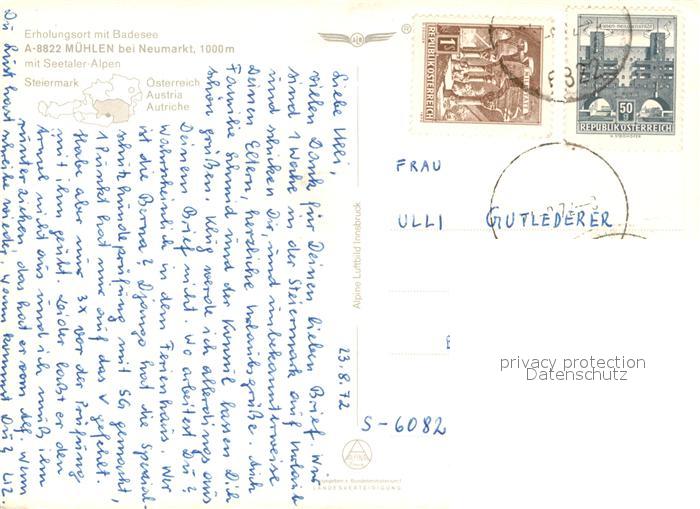 Erholungsort mit Badesee
A-8822 MÜHLEN bei Neumarkt, 1000m
mit Seetaler-Alpen
Steiermark
Österreich
Austria
Autriche
Liebe Ulli,
vielen Dank für Deinen lieben Brief. Wir
sind 1 Woche in der Steiermark auf Urlaub
und schicken Dir, und unbekannterweise
Deinen Eltern, herzliche Urlaubsgrüße. Auch
Familie Schmid und der Kimmel lassen Dich
schön grüßen. Klug werde ich allerdings aus
Deinem Brief nicht. Wo arbeitest Du?
Wahrscheinlich in dem Ferienhaus. Wer
ist die Berma? Django hat die Spezial-
schutzhundeprüfung mit SG gemacht,
1 Punkt hat nur auf das V gefehlt.
Habe aber nur 3x vor der Prüfung
mit ihm geübt. Leider läßt er den
Ärmel nicht aus und ich muß ihn
runterziehen, das hat er vom Alf. Wenn
Du Lust hast schreibe wieder. Wann kommst Du?
23.8.72
Alpine Luftbild Innsbruck
REPUBLIK ÖSTERREICH
1 S
50 g
REPUBLIK ÖSTERREICH
FRAU
ULLI GUTLEDERER
S-6082
privacy protection
Datenschutz
ALPINE
LANDESVERTEIDIGUNG